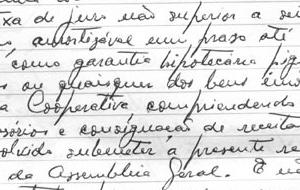 xa de juro não superior a sei
amortizável em prazo até
como garantia hipotecária pig
s ou quaisquer dos bens imó
a Cooperativa compreendendo
sórios e consignação de receita
olvido submeter à presente
da Assembleia Geral. E